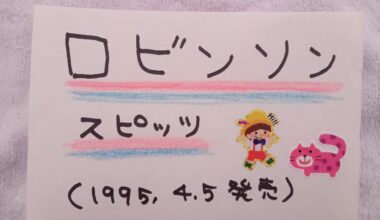 ロビンソン
スピッツ
Hi!!
(1995, 4.5 発売)